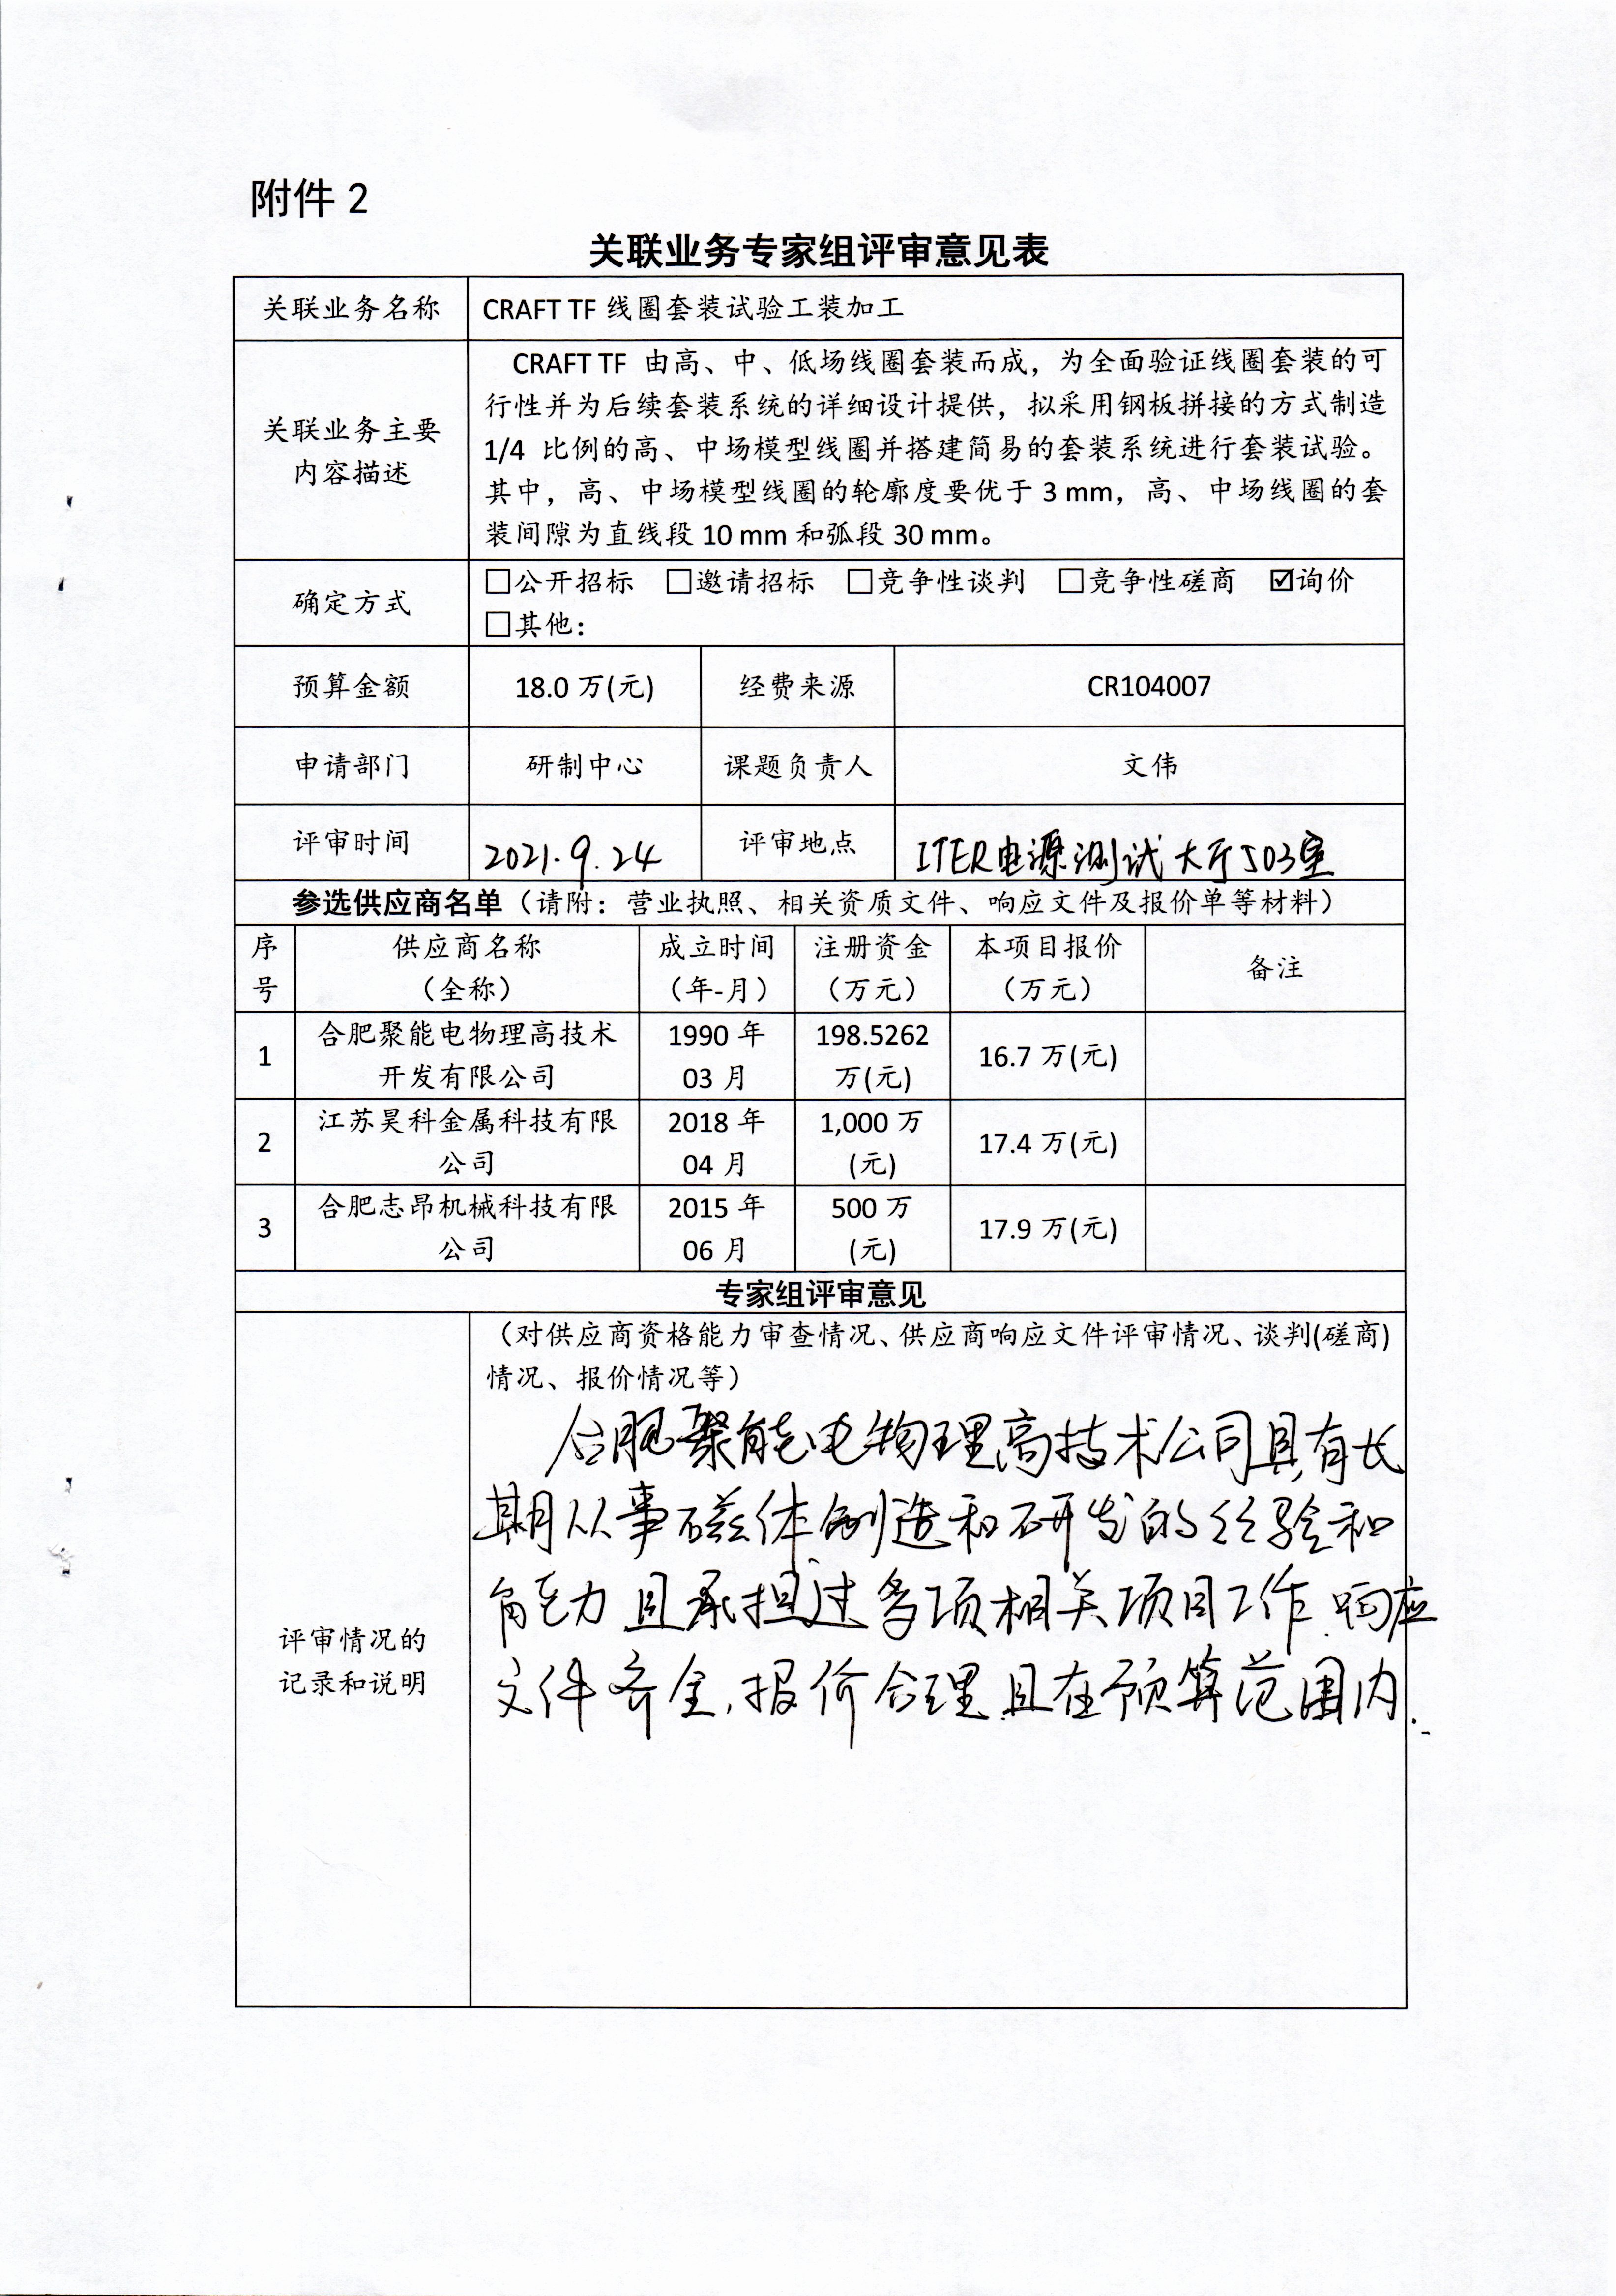 附件 2
关联业务专家组评审意见表
关联业务名称 CRAFT TF 线圈套装试验工装加工
关联业务主要内容描述
CRAFT TF 由高、中、低场线圈套装而成，为全面验证线圈套装的可
行性并为后续套装系统的详细设计提供，拟采用钢板拼接的方式制造
1/4 比例的高、中场模型线圈并搭建简易的套装系统进行套装试验。
其中，高、中场模型线圈的轮廓度要优于 3 mm，高、中场线圈的套
装间隙为直线段 10 mm 和弧段 30 mm。
确定方式 □公开招标 □邀请招标 □竞争性谈判 □竞争性磋商 ☑询价
□其他：
预算金额 18.0 万(元) 经费来源 CR104007
申请部门 研制中心 课题负责人 文伟
评审时间 2021.9.24 评审地点 ITER电源测试大厅503室
参选供应商名单（请附：营业执照、相关资质文件、响应文件及报价单等材料）
序号 供应商名称（全称） 成立时间（年-月） 注册资金（万元） 本项目报价（万元） 备注
1 合肥聚能电物理高技术开发有限公司 1990 年 03 月 198.5262 万(元) 16.7 万(元)
2 江苏昊科金属科技有限公司 2018 年 04 月 1,000 万(元) 17.4 万(元)
3 合肥志昂机械科技有限公司 2015 年 06 月 500 万(元) 17.9 万(元)
专家组评审意见
评审情况的记录和说明
（对供应商资格能力审查情况、供应商响应文件评审情况、谈判(磋商)
情况、报价情况等）
合肥聚能电物理高技术公司具有长
期从事磁体制造和研发的经验和
能力且承担过多项相关项目工作.响应
文件齐全,报价合理且在预算范围内.